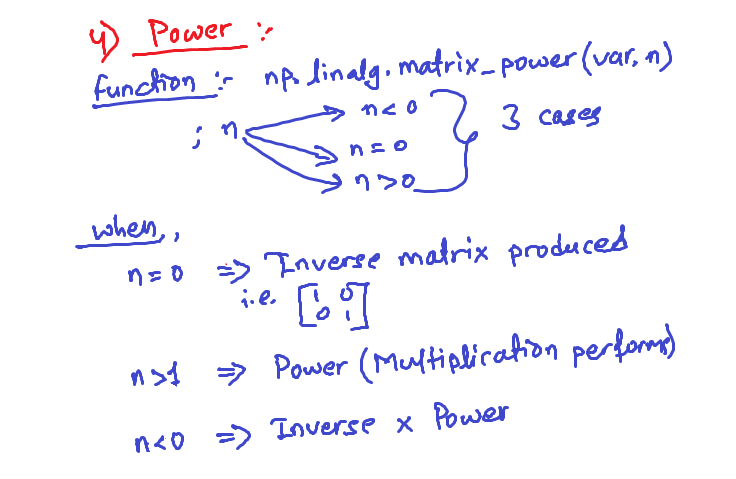 4) Power :-
function :- np.linalg.matrix_power(var, n)
; n
n < 0
n = 0
n > 0
3 cases
when,,
n = 0 => Inverse matrix produced
i.e. [1 0
0 1]
n > 1 => Power (Multiplication performs)
n < 0 => Inverse x Power